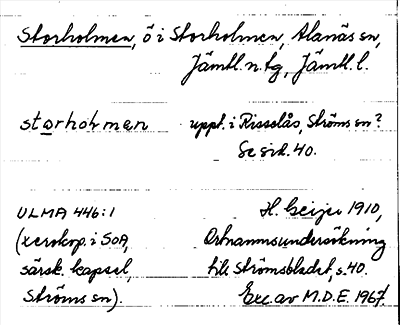 Storholmen, ö i Storholmen, Alanäs sn,
Jämtl. n. tg, Jämtl. l.
storholmen uppt. i Risselås, Ströms sn?
Se sid. 40.
ULMA 446:1 H. Geijer 1910,
(xerokop. i SOA, Ortnamnsundersökning
särsk. kapsel, till Strömsbladet, s. 40.
Ströms sn). Exc. av M.D.E. 1967.